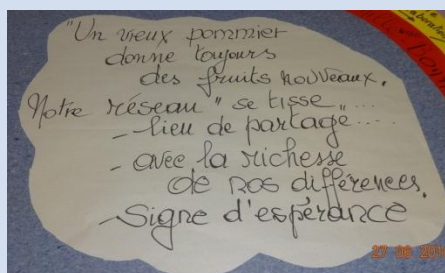 "Un vieux pommier
donne toujours
des fruits nouveaux.
Notre réseau " se tisse "....
- lieu de partage....
- avec la richesse
de nos différences.
- Signe d'espérance